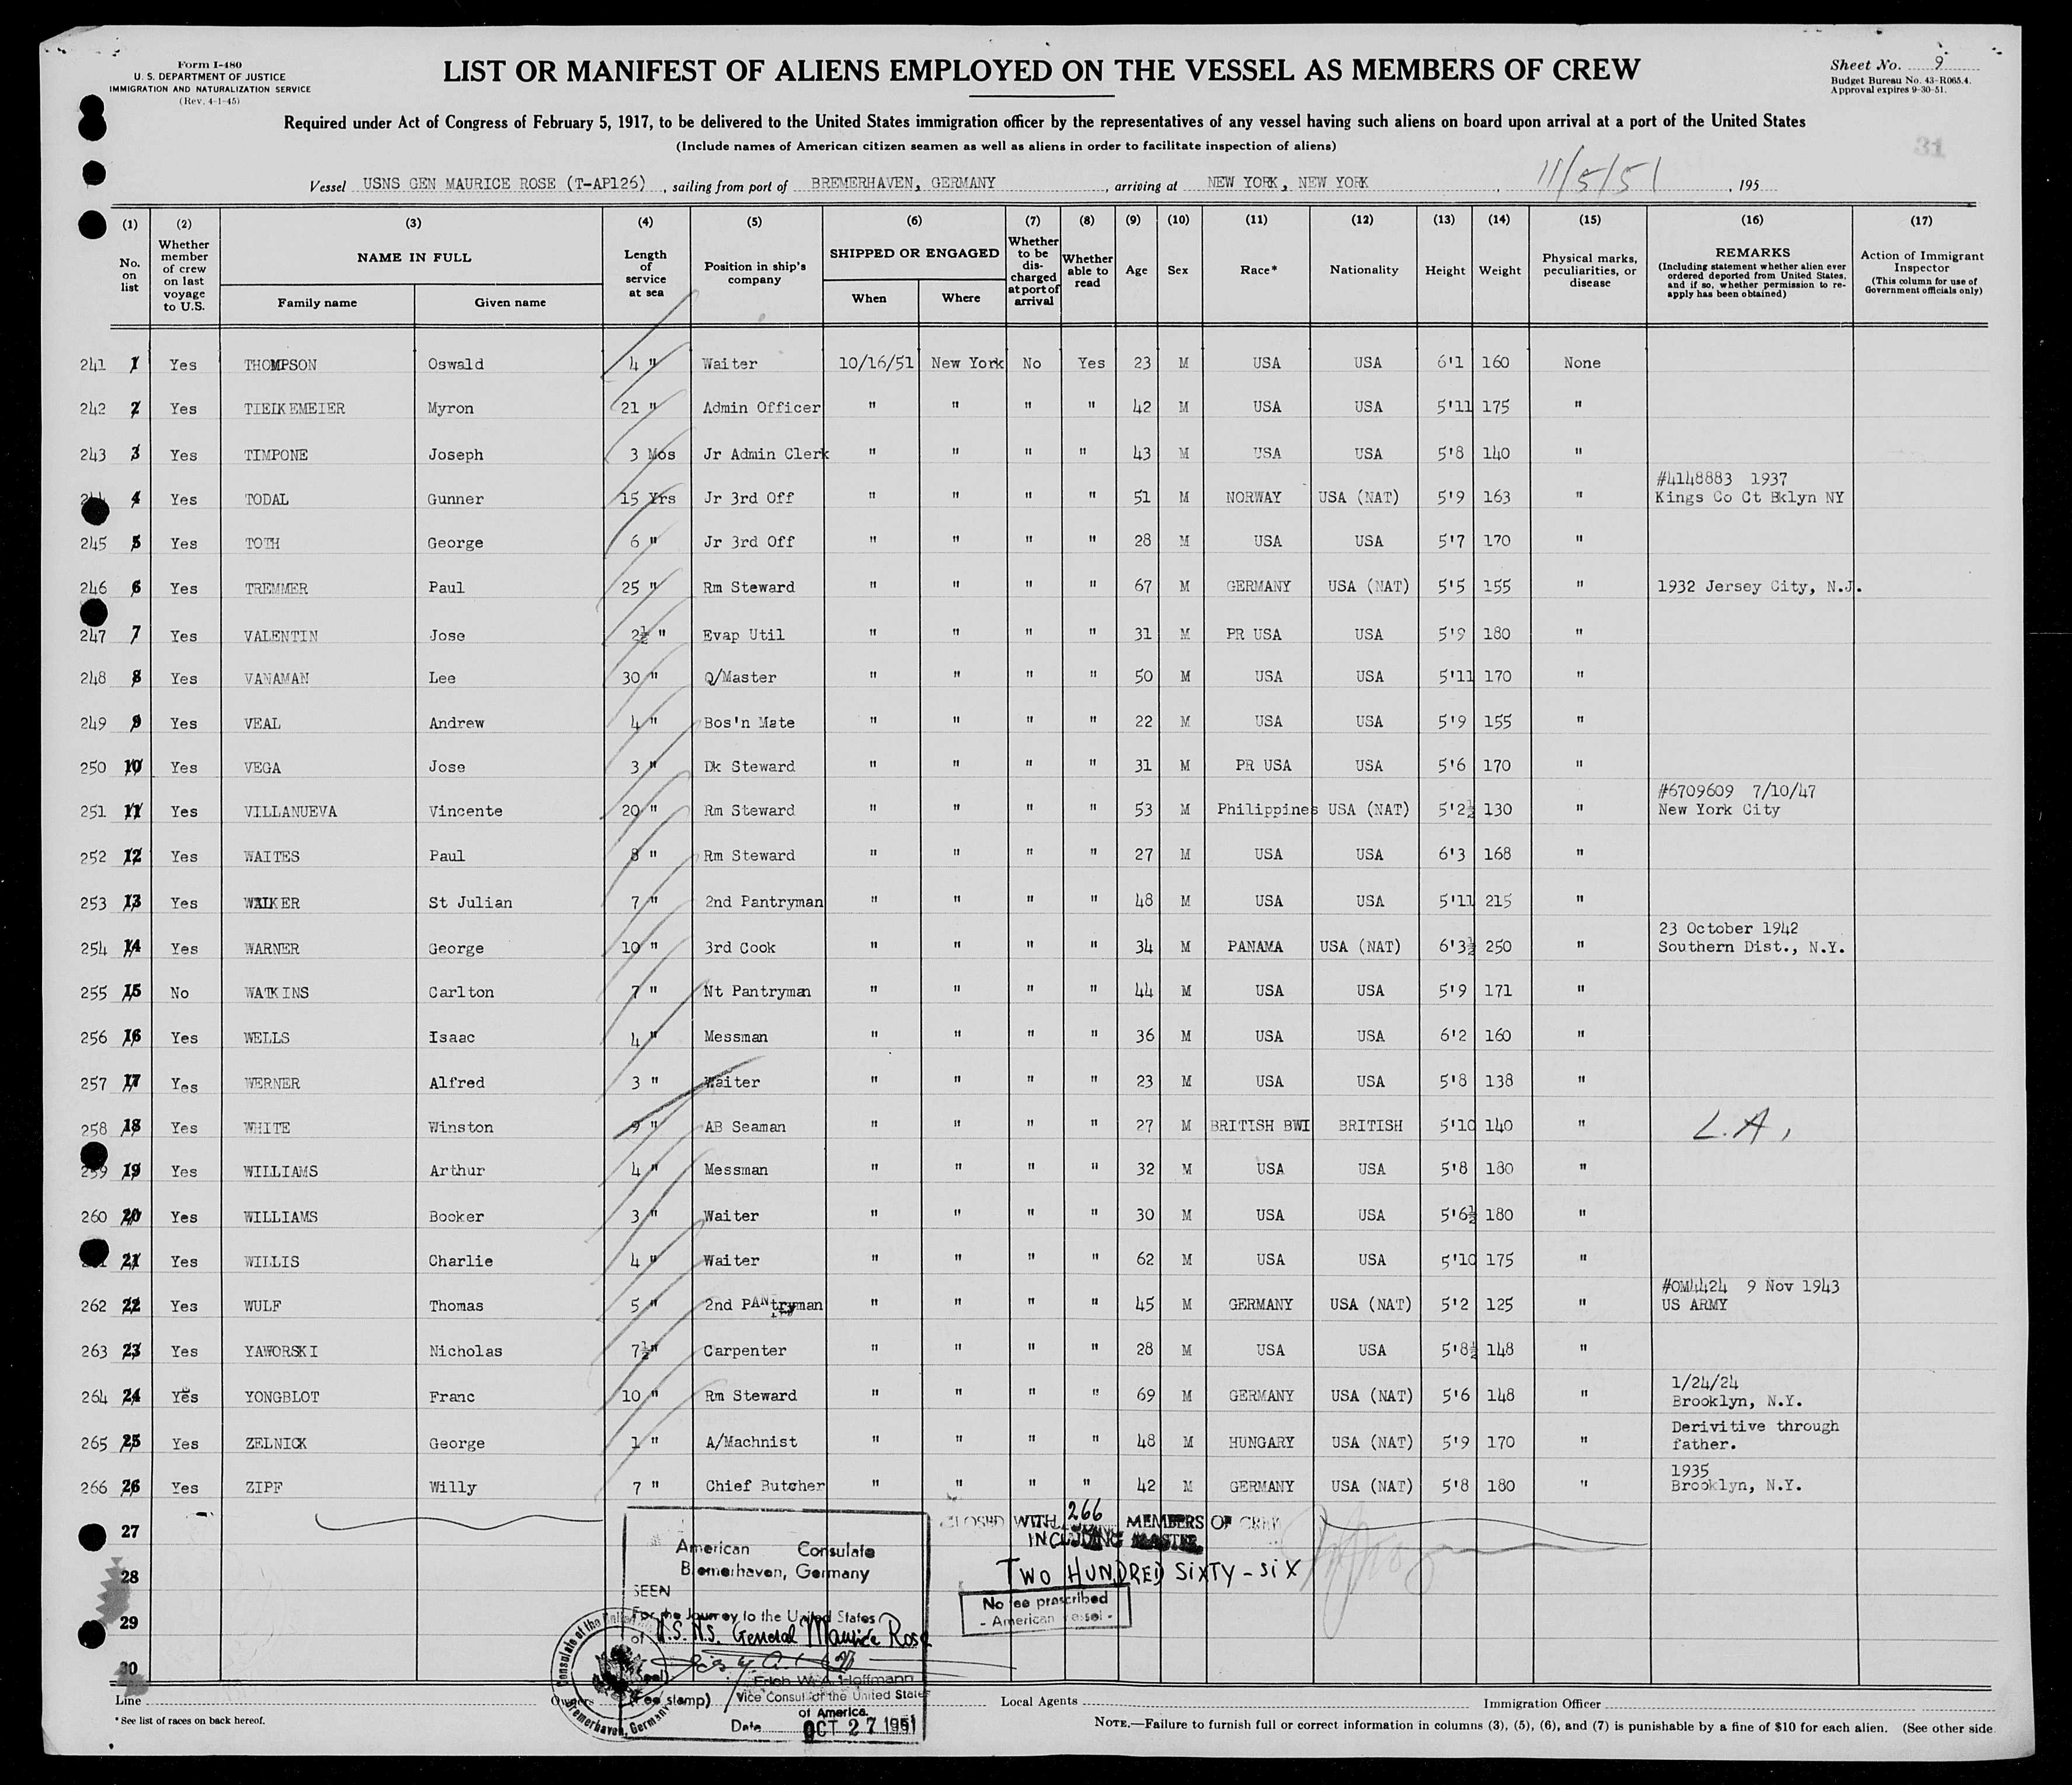 Form I-480
U. S. DEPARTMENT OF JUSTICE
IMMIGRATION AND NATURALIZATION SERVICE
(Rev. 4-1-45)
LIST OR MANIFEST OF ALIENS EMPLOYED ON THE VESSEL AS MEMBERS OF CREW
Sheet No. 9
Budget Bureau No. 43-R065.4.
Approval expires 9-30-51.
Required under Act of Congress of February 5, 1917, to be delivered to the United States immigration officer by the representatives of any vessel having such aliens on board upon arrival at a port of the United States
(Include names of American citizen seamen as well as aliens in order to facilitate inspection of aliens)
31
Vessel USNS GEN MAURICE ROSE (T-AP126) , sailing from port of BREMERHAVEN, GERMANY , arriving at NEW YORK, NEW YORK , 11/5/51 , 195
(1) (2) (3) (4) (5) (6) (7) (8) (9) (10) (11) (12) (13) (14) (15) (16) (17)
No. on list
Whether member of crew on last voyage to U.S.
NAME IN FULL
Family name Given name
Length of service at sea
Position in ship's company
SHIPPED OR ENGAGED
When Where
Whether to be discharged at port of arrival
Whether able to read
Age Sex Race* Nationality Height Weight
Physical marks, peculiarities, or disease
REMARKS
(Including statement whether alien ever ordered deported from United States, and if so, whether permission to re-apply has been obtained)
Action of Immigrant Inspector
(This column for use of Government officials only)
241 1 Yes THOMPSON Oswald 4 " Waiter 10/16/51 New York No Yes 23 M USA USA 6'1 160 None
242 2 Yes TIEIKEMEIER Myron 21 " Admin Officer " " " " 42 M USA USA 5'11 175 "
243 3 Yes TIMPONE Joseph 3 Mos Jr Admin Clerk " " " " 43 M USA USA 5'8 140 "
#4148883 1937
4 Yes TODAL Gunner 15 Yrs Jr 3rd Off " " " " 51 M NORWAY USA (NAT) 5'9 163 " Kings Co Ct Bklyn NY
245 5 Yes TOTH George 6 " Jr 3rd Off " " " " 28 M USA USA 5'7 170 "
246 6 Yes TREMMER Paul 25 " Rm Steward " " " " 67 M GERMANY USA (NAT) 5'5 155 " 1932 Jersey City, N.J.
247 7 Yes VALENTIN Jose 2½ " Evap Util " " " " 31 M PR USA USA 5'9 180 "
248 8 Yes VANAMAN Lee 30 " Q/Master " " " " 50 M USA USA 5'11 170 "
249 9 Yes VEAL Andrew 4 " Bos'n Mate " " " " 22 M USA USA 5'9 155 "
250 10 Yes VEGA Jose 3 " Dk Steward " " " " 31 M PR USA USA 5'6 170 "
#6709609 7/10/47
251 11 Yes VILLANUEVA Vincente 20 " Rm Steward " " " " 53 M Philippines USA (NAT) 5'2½ 130 " New York City
252 12 Yes WAITES Paul 8 " Rm Steward " " " " 27 M USA USA 6'3 168 "
253 13 Yes WALKER St Julian 7 " 2nd Pantryman " " " " 48 M USA USA 5'11 215 "
23 October 1942
254 14 Yes WARNER George 10 " 3rd Cook " " " " 34 M PANAMA USA (NAT) 6'3½ 250 " Southern Dist., N.Y.
255 15 No WATKINS Carlton 7 " Nt Pantryman " " " " 44 M USA USA 5'9 171 "
256 16 Yes WELLS Isaac 4 " Messman " " " " 36 M USA USA 6'2 160 "
257 17 Yes WERNER Alfred 3 " Waiter " " " " 23 M USA USA 5'8 138 "
258 18 Yes WHITE Winston 9 " AB Seaman " " " " 27 M BRITISH BWI BRITISH 5'10 140 " L.A,
259 19 Yes WILLIAMS Arthur 4 " Messman " " " " 32 M USA USA 5'8 180 "
260 20 Yes WILLIAMS Booker 3 " Waiter " " " " 30 M USA USA 5'6½ 180 "
21 Yes WILLIS Charlie 4 " Waiter " " " " 62 M USA USA 5'10 175 "
#OM4424 9 Nov 1943
262 22 Yes WULF Thomas 5 " 2nd PANtryman " " " " 45 M GERMANY USA (NAT) 5'2 125 " US ARMY
263 23 Yes YAWORSKI Nicholas 7½" Carpenter " " " " 28 M USA USA 5'8½ 148 "
1/24/24
264 24 Yes YONGBLOT Franc 10 " Rm Steward " " " " 69 M GERMANY USA (NAT) 5'6 148 " Brooklyn, N.Y.
Derivitive through
265 25 Yes ZELNICK George 1 " A/Machnist " " " " 48 M HUNGARY USA (NAT) 5'9 170 " father.
1935
266 26 Yes ZIPF Willy 7 " Chief Butcher " " " " 42 M GERMANY USA (NAT) 5'8 180 " Brooklyn, N.Y.
27
28
29
30
CLOSED WITH 266 MEMBERS OF CREW
INCLUDING MASTER
TWO HUNDRED SIXTY-SIX
No fee prescribed
- American vessel -
American Consulate
Bremerhaven, Germany
SEEN
For the Journey to the United States
of U.S.N.S. General Maurice Rose
Erich W. A. Hoffmann
(Seal)
(Fee stamp) Vice Consul of the United States
of America.
Date OCT 27 1951
Consulate of the United
Bremerhaven, Germany
Line Owners Local Agents Immigration Officer
*See list of races on back hereof.
NOTE.—Failure to furnish full or correct information in columns (3), (5), (6), and (7) is punishable by a fine of $10 for each alien. (See other side